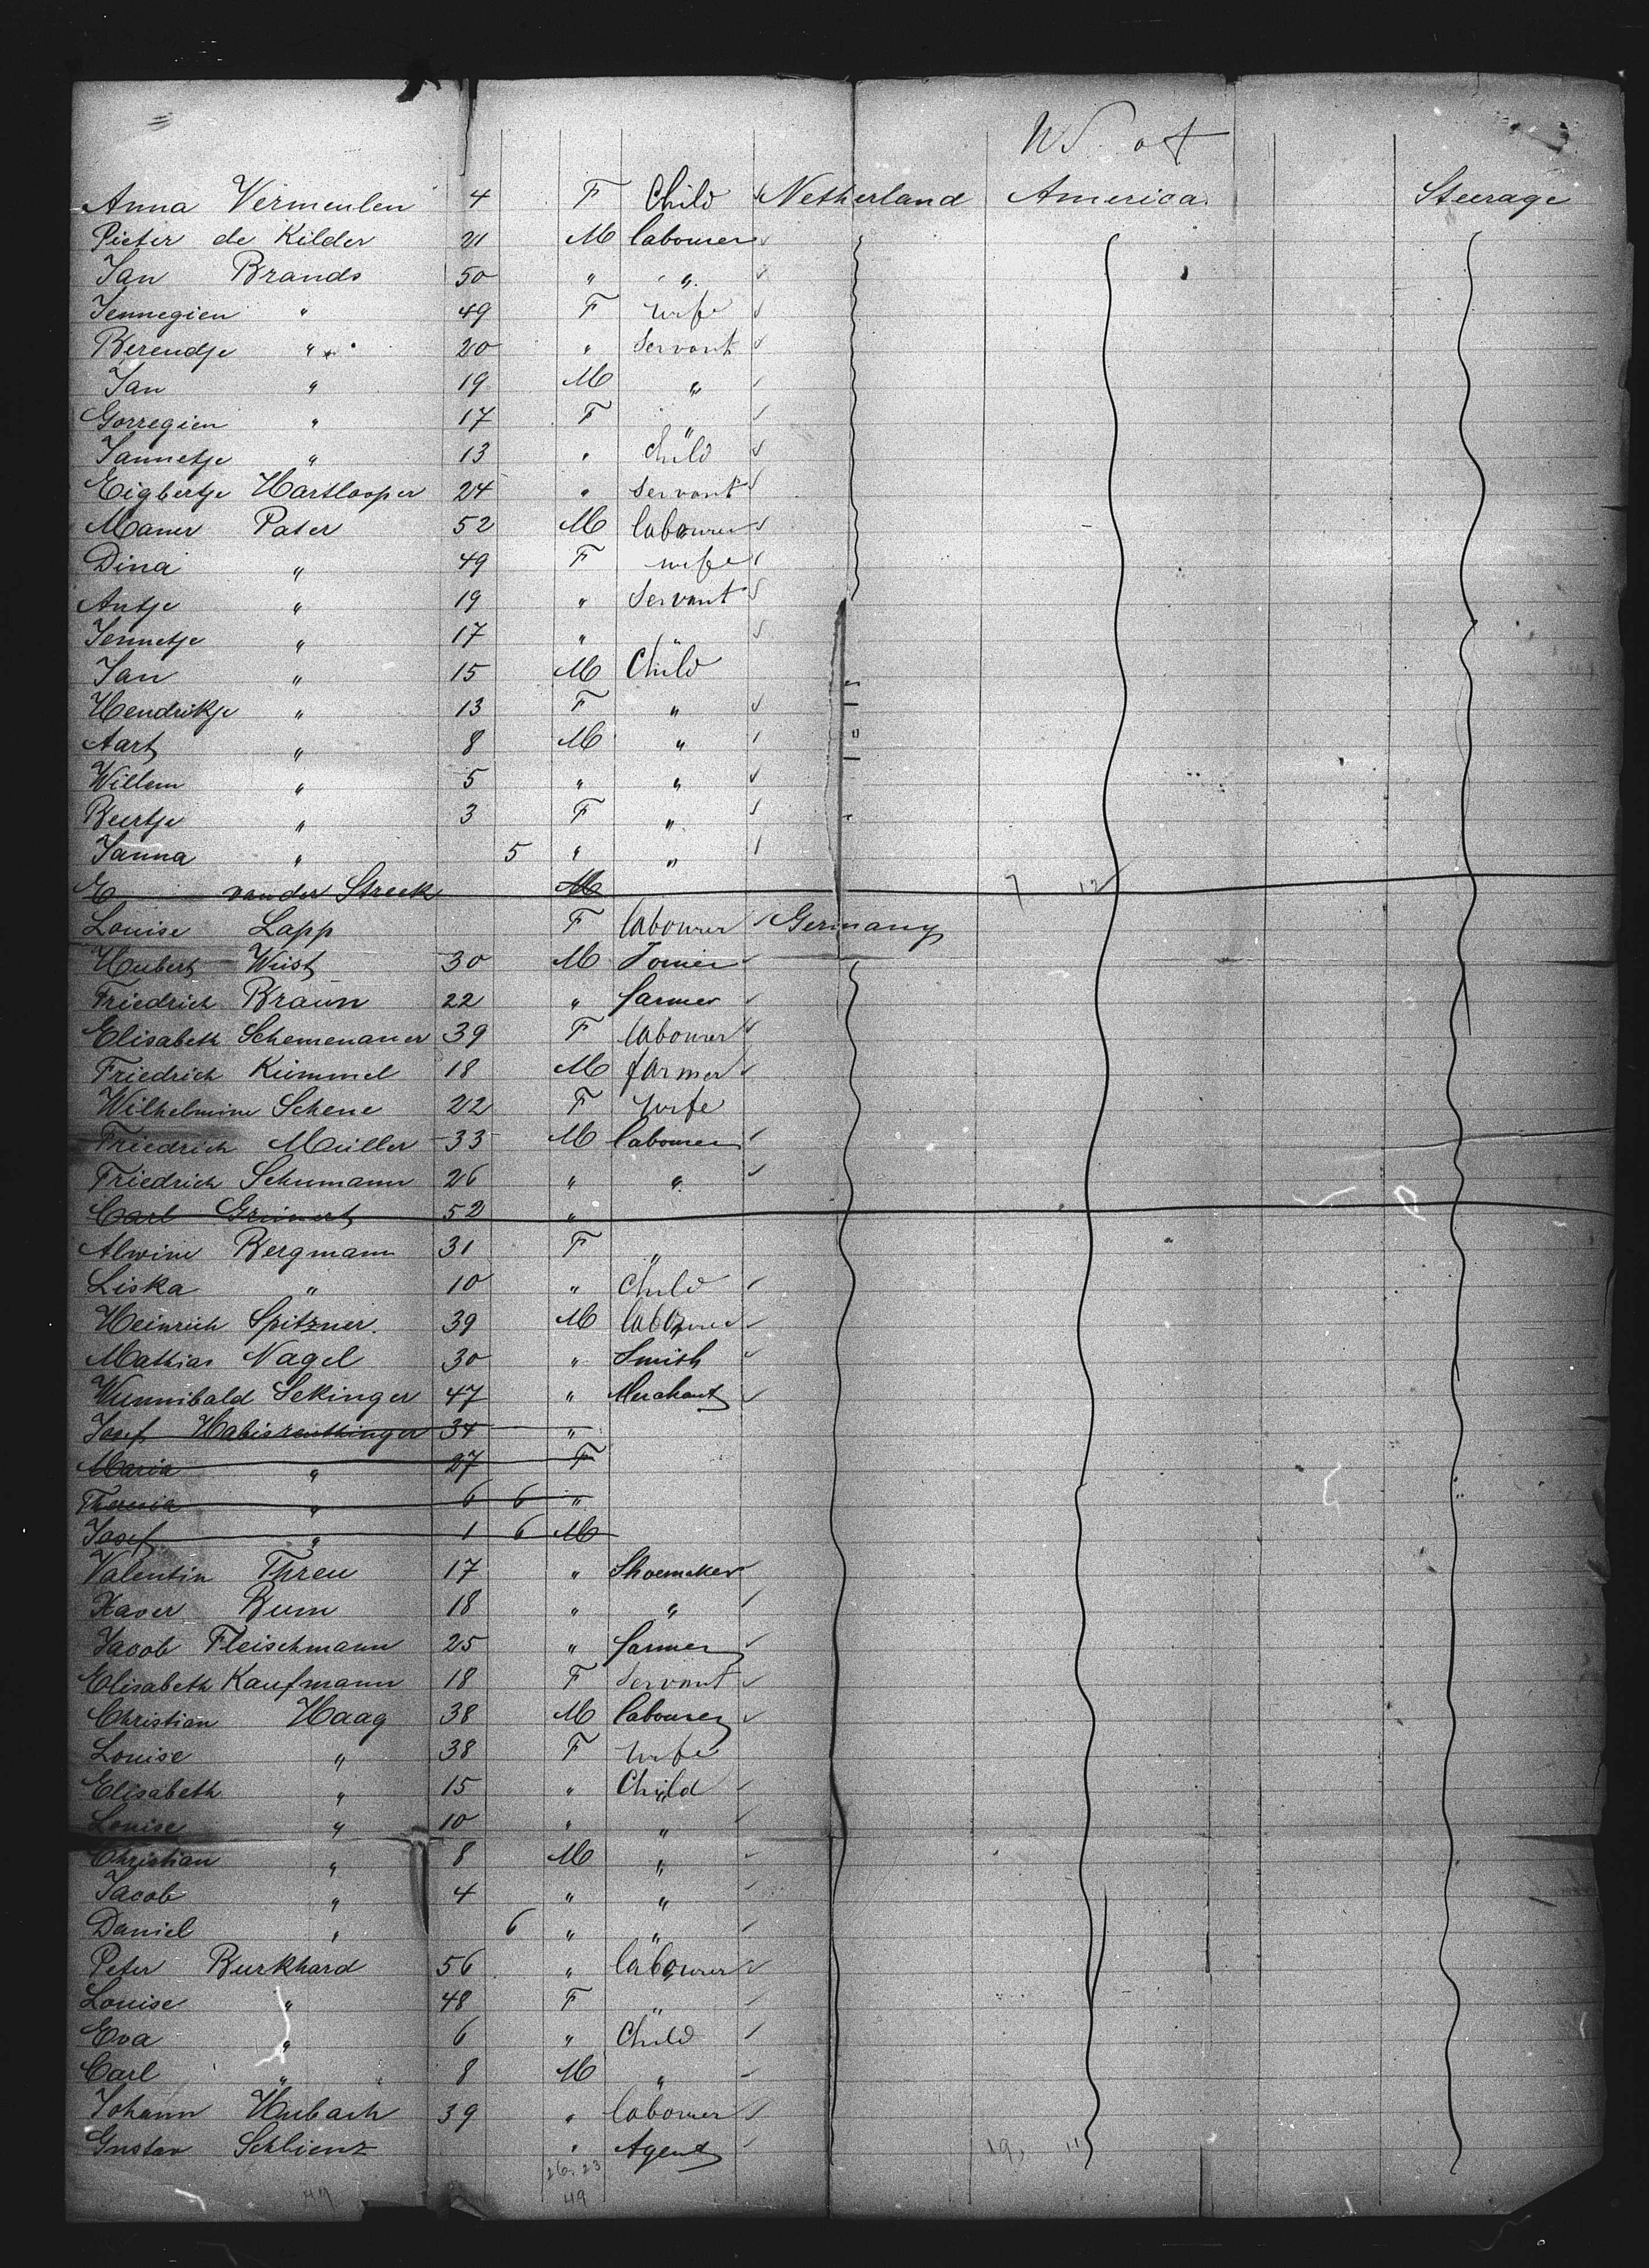 US. of
Anna Vermeulen 4 F Child Netherland America Steerage
Pieter de Kilder 21 M labourer
Jan Brands 50 " "
Jennegien " 49 F wife
Berendje " 20 " Servant
Jan " 19 M "
Gorregien " 17 F "
Jannetje " 13 " child
Eigbertje Hartlooper 24 " Servant
Maner Pater 52 M labourer
Dina " 49 F wife
Antje " 19 " Servant
Jennetje " 17 " "
Jan " 15 M Child
Hendrikje " 13 F "
Aart " 8 M "
Willem " 5 " "
Beertje " 3 F "
Janna " 5 " "
E van der Streek M 7 12
Louise Lapp F labourer Germany
Hubert Wüst 30 M Joiner
Friedrich Braun 22 " farmer
Elisabeth Schemenauer 39 F labourer
Friedrich Kümmel 18 M farmer
Wilhelmine Schene 22 F wife
Friedrich Müller 33 M labourer
Friedrich Schumann 26 " "
Carl Greinert 52 "
Alwine Bergmann 31 F "
Liska " 10 " Child
Heinrich Spitzner. 39 M labourer
Mathias Nagel 30 " Smith
Wunnibald Sekinger 47 " Merchant
Josef Habisreuthinger 34 "
Maria " 27 F
Theresia " 6 6 "
Josef " 1 6 M
Valentin Threu 17 " Shoemaker
Xaver Bum 18 " "
Jacob Fleischmann 25 " farmer
Elisabeth Kaufmann 18 F Servant
Christian Haag 38 M labourer
Louise " 38 F wife
Elisabeth " 15 " Child
Louise " 10 " "
Christian " 8 M "
Jacob " 4 " "
Daniel " 6 " "
Peter Burkhard 56 " labourer
Louise " 48 F "
Eva " 6 " Child
Carl " 8 M "
Johann Hubach 39 " labourer
Gustav Schlienz " Agent 19, 11
26. 23
49